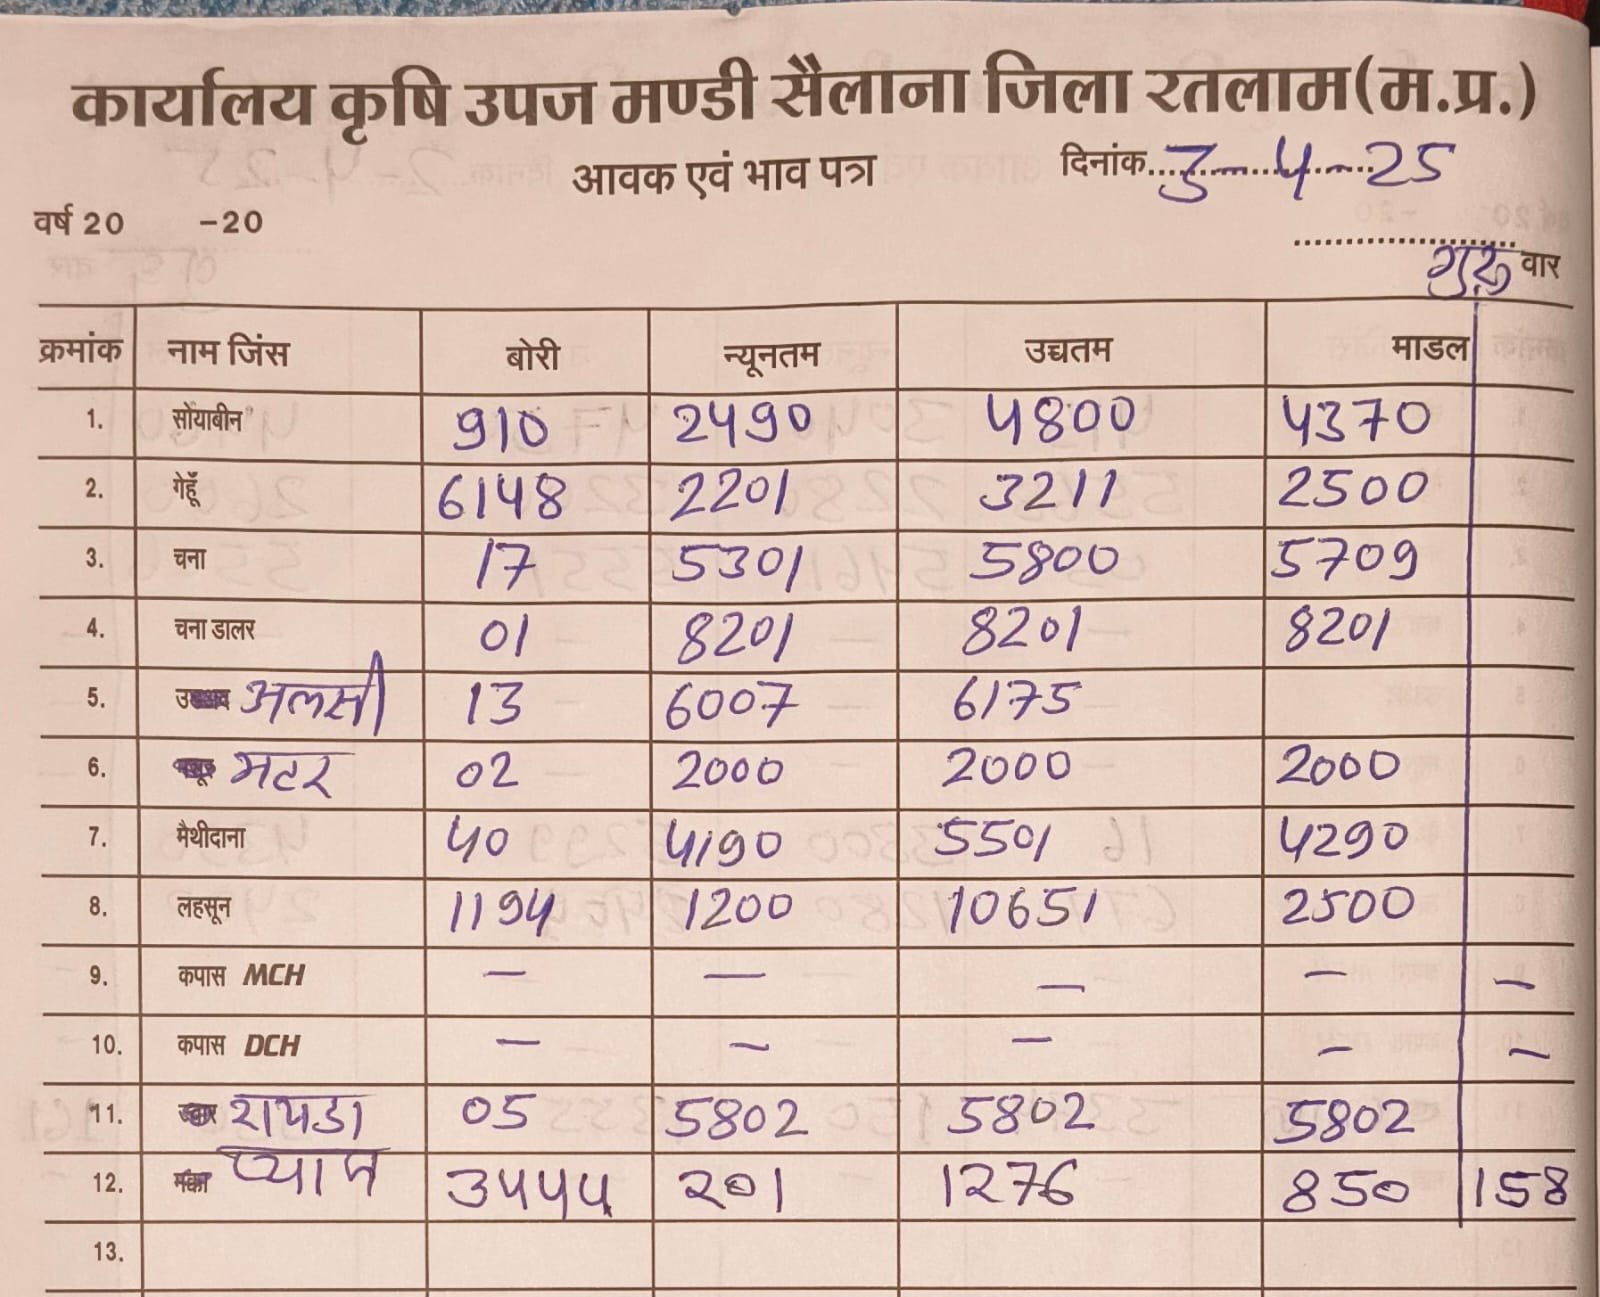 कार्यालय कृषि उपज मण्डी सैलाना जिला रतलाम(म.प्र.)
आवक एवं भाव पत्र दिनांक...3...4...25
वर्ष 20 -20
गुरु वार
क्रमांक नाम जिंस बोरी न्यूनतम उच्चतम माडल
1. सोयाबीन 910 2490 4800 4370
2. गेहूँ 6148 2201 3211 2500
3. चना 17 5301 5800 5709
4. चना डालर 01 8201 8201 8201
5. अलसी 13 6007 6175
6. मटर 02 2000 2000 2000
7. मैथीदाना 40 4190 5501 4290
8. लहसून 1194 1200 10651 2500
9. कपास MCH — — — — —
10. कपास DCH — — — — —
11. रायडा 05 5802 5802 5802
12. प्याज 201 1276 850 158
13.